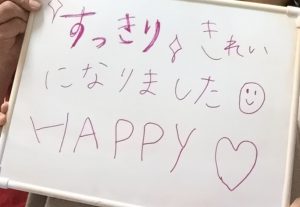 すっきり きれい
になりました
HAPPY